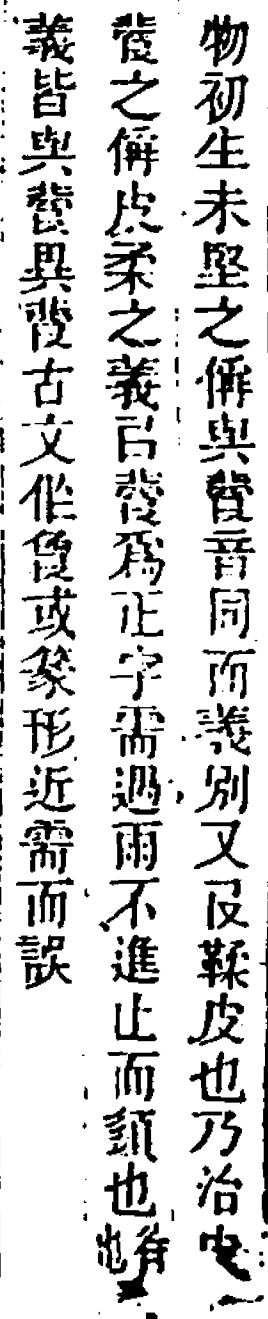 物初生未堅之偁與㼱音同而義別又鞣皮也乃治
㼱之偁皮柔之義㠯㼱爲正字需遇雨不進止而䇓也
義皆與㼱異㼱古文作或篆形近需而誤